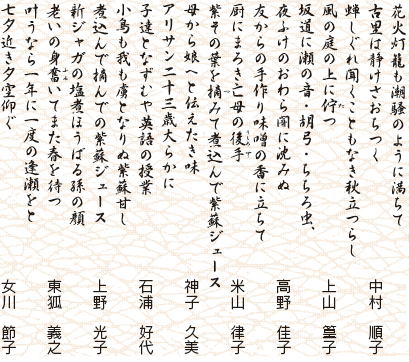 花火灯籠も潮騒のように満ちて
古里は静けさおちつく 中村 順子
蝉しぐれ聞くこともなき秋立つらし
風の庭の上に佇つ 上山 篁子
坂道に瀬の音・胡弓・ちちろ虫、
夜ふけのおわら闇に沈みぬ 高野 佳子
友からの手作り味噌の香に立ちて
厨にまろき亡母の後手 米山 律子
紫その葉を摘みて煮込んで紫蘇ジュース
母から娘へと伝えたき味 神子 久美
アリサン二十三歳大らかに
子達となずむや英語の授業 石浦 好代
小鳥も我も虜となりぬ紫蘇甘し
煮込んで摘んでの紫蘇ジュース 上野 光子
新ジャガの塩煮ほうばる孫の顔
老いの身奮いてまた春を待つ 東狐 義之
叶うなら一年に一度の逢瀬をと
七夕近き夕空仰ぐ 女川 節子